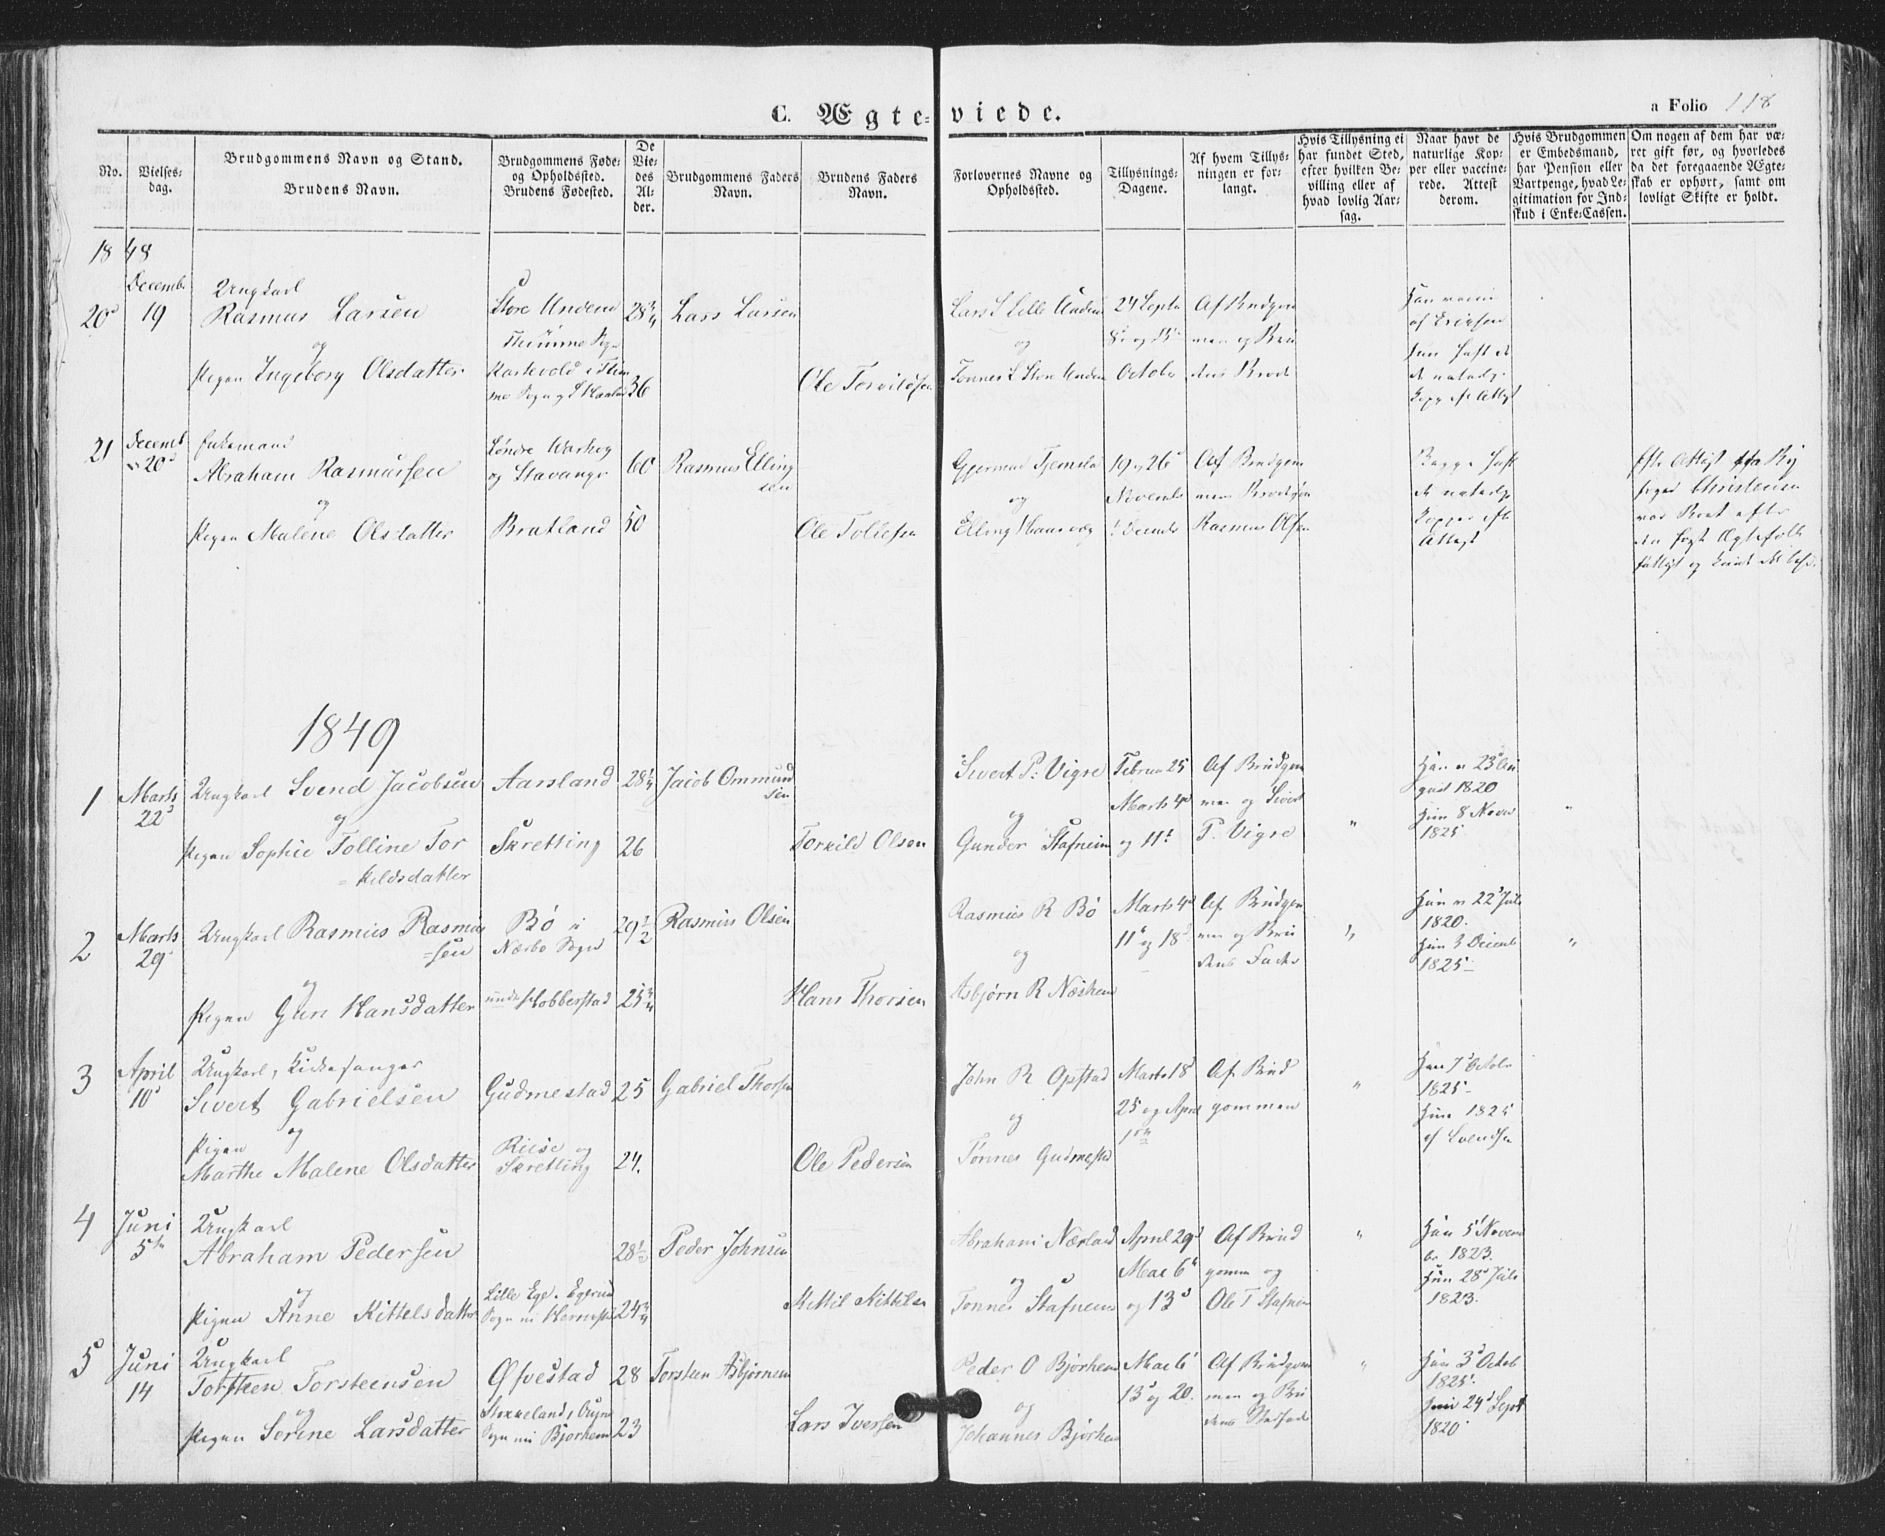 C. Ægteviede.
a Folio 118
No.
Vielsesdag.
Brudgommens Navn og Stand.
Brudens Navn.
Brudgommens Føde- og Opholdssted.
Brudens Fødested.
De Viedes Alder.
Brudgommens Faders Navn.
Brudens Faders Navn.
Forlovernes Navne og Opholdssted.
Tillysnings-Dagene.
Af hvem Tillysningen er forlangt.
Hvis Tillysning ei har fundet Sted, efter hvilken Bevilling eller af hvad lovlig Aarsag.
Naar havt de naturlige Kopper eller vaccinerede. Attest derom.
Hvis Brudgommen er Embedsmand, har Pension eller Vartpenge, hvad Legitimation for Indskud i Enke-Cassen.
Om nogen af dem har været gift før, og hvorledes da det foregaaende Ægteskab er ophørt, samt om lovligt Skifte er holdt.
1848
20 Decembr 19
Ungkarl
Rasmus Larsen
og
Pigen Ingeborg Olsdatter
Store Undem
Thime Sogn
28 1/4
36
Lars Larsen
Lars L Lille Undem
og
Tonnes L Store Undem
24 Septb
8 og 15
October
Af Brudgom
men og Bru
dens Broder
21 Decemb 20
Enkemand
Abraham Rasmussen
og
Pigen Malene Olsdatter
Søndre Warhog
og Stavanger
Bratland
60
50
Rasmus Elling
sen
Ole Tollefsen
og
Elling Haarvog
19 og 26
Novemb
Decemb
Af Brudgom
men
Rasmus Olsen
Begge haft
de naturlige
Kopper efter
Attest
Christensen
1849
1 Marts 22
Ungkarl Svend Jacobsen
og
Pigen Sophie Tolline Tor
=kildsdatter
Aarsland
Skretting
28 1/4
26
Jacob Ommund
sen
Torkild Olsen
Sivert P: Vigre
og
Gunder Stafneim
Februar 25
Marts 4
og 11
Af Brudgom
men og Sivert
P. Vigre
"
Han 23 Au
gust 1820
Hun 8 Novbr
1825
"
2 Marts 29
Ungkarl Rasmus Rasmus
=sen
og
Pigen Guri Hansdatter
Bø i
Nærbø Sogn
Hobberstad
29 1/2
23 3/4
Rasmus Olsen
Hans Thorsen
Rasmus R Bø
og
Asbjørn R Næsheim
Marts 4
11 og 18
Af Brudgom
men og Bru
dens Fader
"
Han 22 Juli
1820.
Hun 3 Decemb
1825
"
3 April 10
Ungkarl, Kirkesanger
Sivert Gabrielsen
og
Pigen
Marthe Malene Olsdatter
Gudmestad
Riise og
Skretting
25
24.
Gabriel Thorsen
Ole Pedersen
John R Opstad
og
Tonnes Gudmestad
Marts 18
25 og April
1
Af Brud
gommen
"
Han 7 Octobr
1825
Hun 1825
af Svendsen
4 Juni 5
Ungkarl
Abraham Pedersen
og
Pigen Anne Kittelsdatter
Lille Ege. Egersund
28 1/2
24 3/4
Peder Johnsen
Kittil Kittilsen
Abraham Nærland
og
Tonnes Stafneim
April 29
Mai 6
og 13
Af Brud
gommen og
Ole T Stafneim
"
Han 5 Novem
br 1823.
Hun 28 Juli
1823.
5 Juni 14
Ungkarl
Torsteen Torsteensen
og
Pigen Serine Larsdatter
Øfvestad
Stokkeland, Ougne
Sogn nu Bjorheim
28
23
Torsteen Asbjørnsen
Lars Iversen
Peder O Bjorheim
og
Johannes Bjorheim
Mai 6
13 og 20.
Af Brudgom
men og Bru
dens
"
Han 3 Octob
1825.
Hun 24 Sept
1820